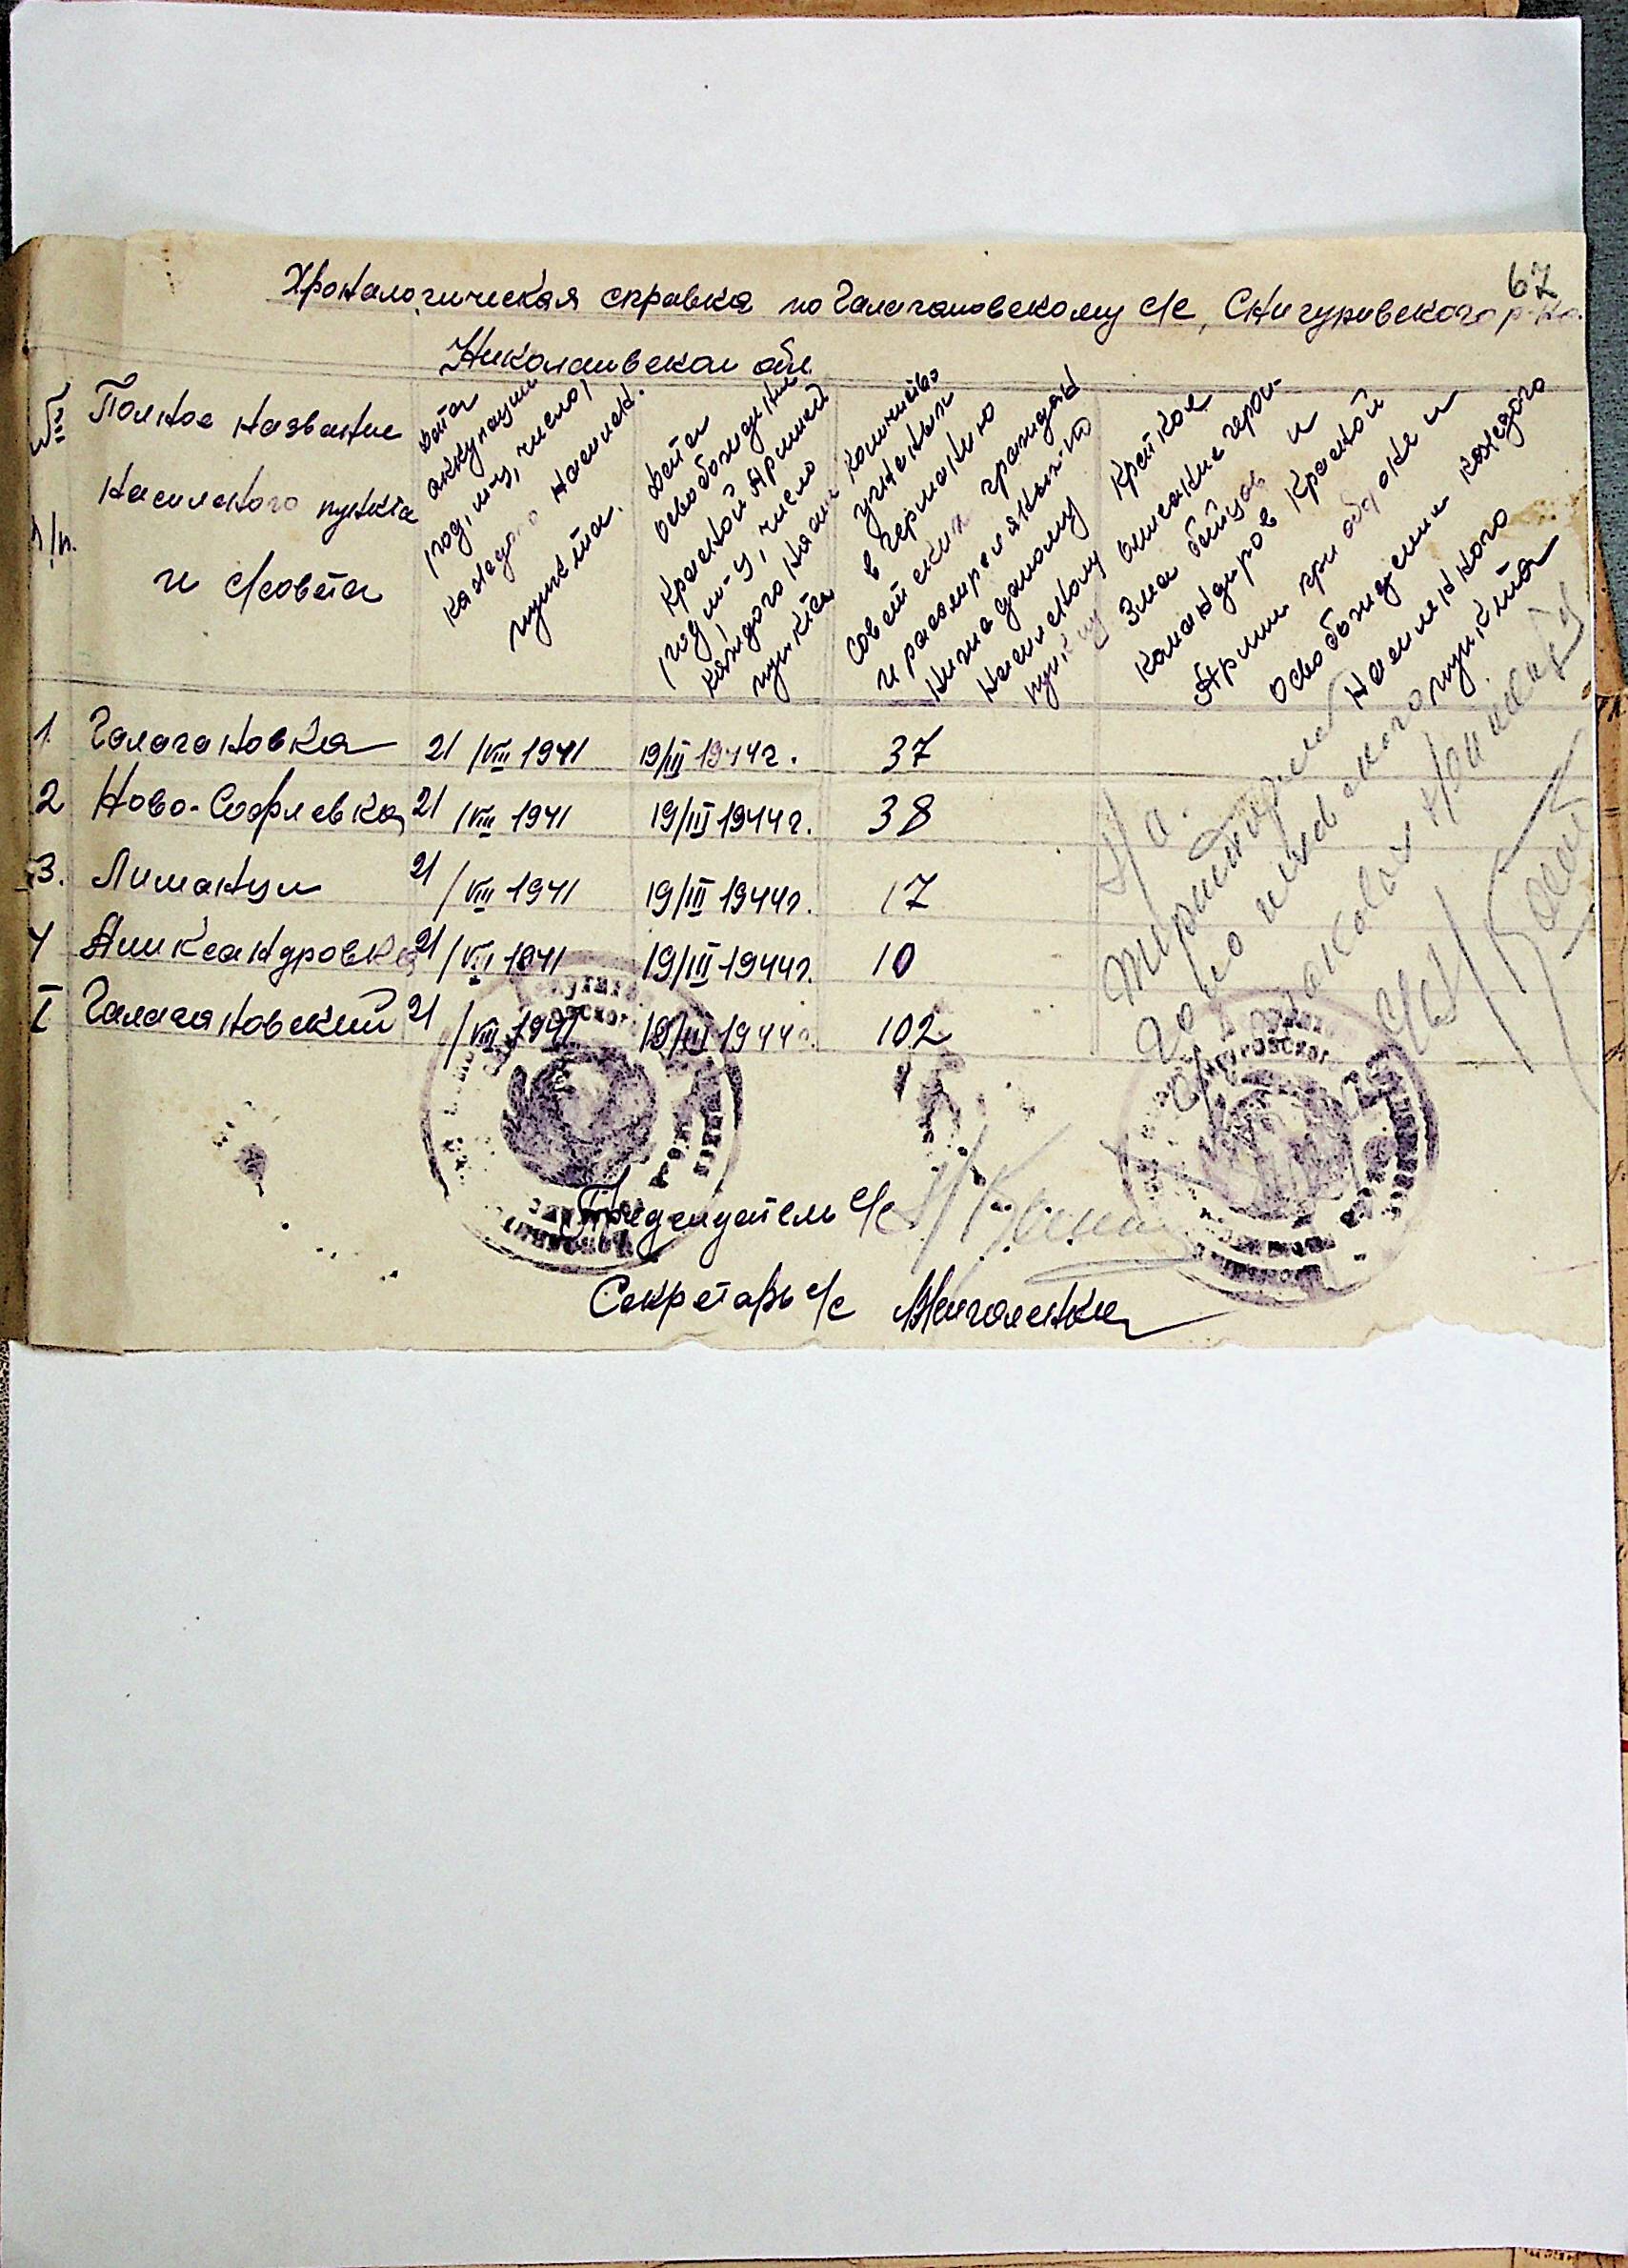 67
Хроналогическая справка по Галагановскому с/с, Снигуривского р-на.
Николаивской обл.
№№ п/п.
Полное название
населеного пункта
и с/совета
Дата
аккупации
год, м-ц, число,
каждого населен.
пункта.
Дата
освобождения
Красной Армией
год м-ц, число
каждого насел
пункта
Количество
угненых
в Германию
Советских граждан
и расстрелянных по
ниже даному
населеному
пункту
Краткое
описание герои-
зма бойцов и
командиров Красной
Армии при обороне и
освобождении каждого
населенного
пункта
1. Галагановка 21/VIII 1941 19/III 1944г. 37
2 Ново-Софиевка 21/VIII 1941 19/III 1944г. 38
3. Лиманци 21/VIII 1941 19/III 1944г. 17
4 Аликсандровка 21/VIII 1941 19/III 1944г. 10
I Галагановский 21/VIII 1941 19/III 1944г. 102
Председатель с/с
Секретарь с/с